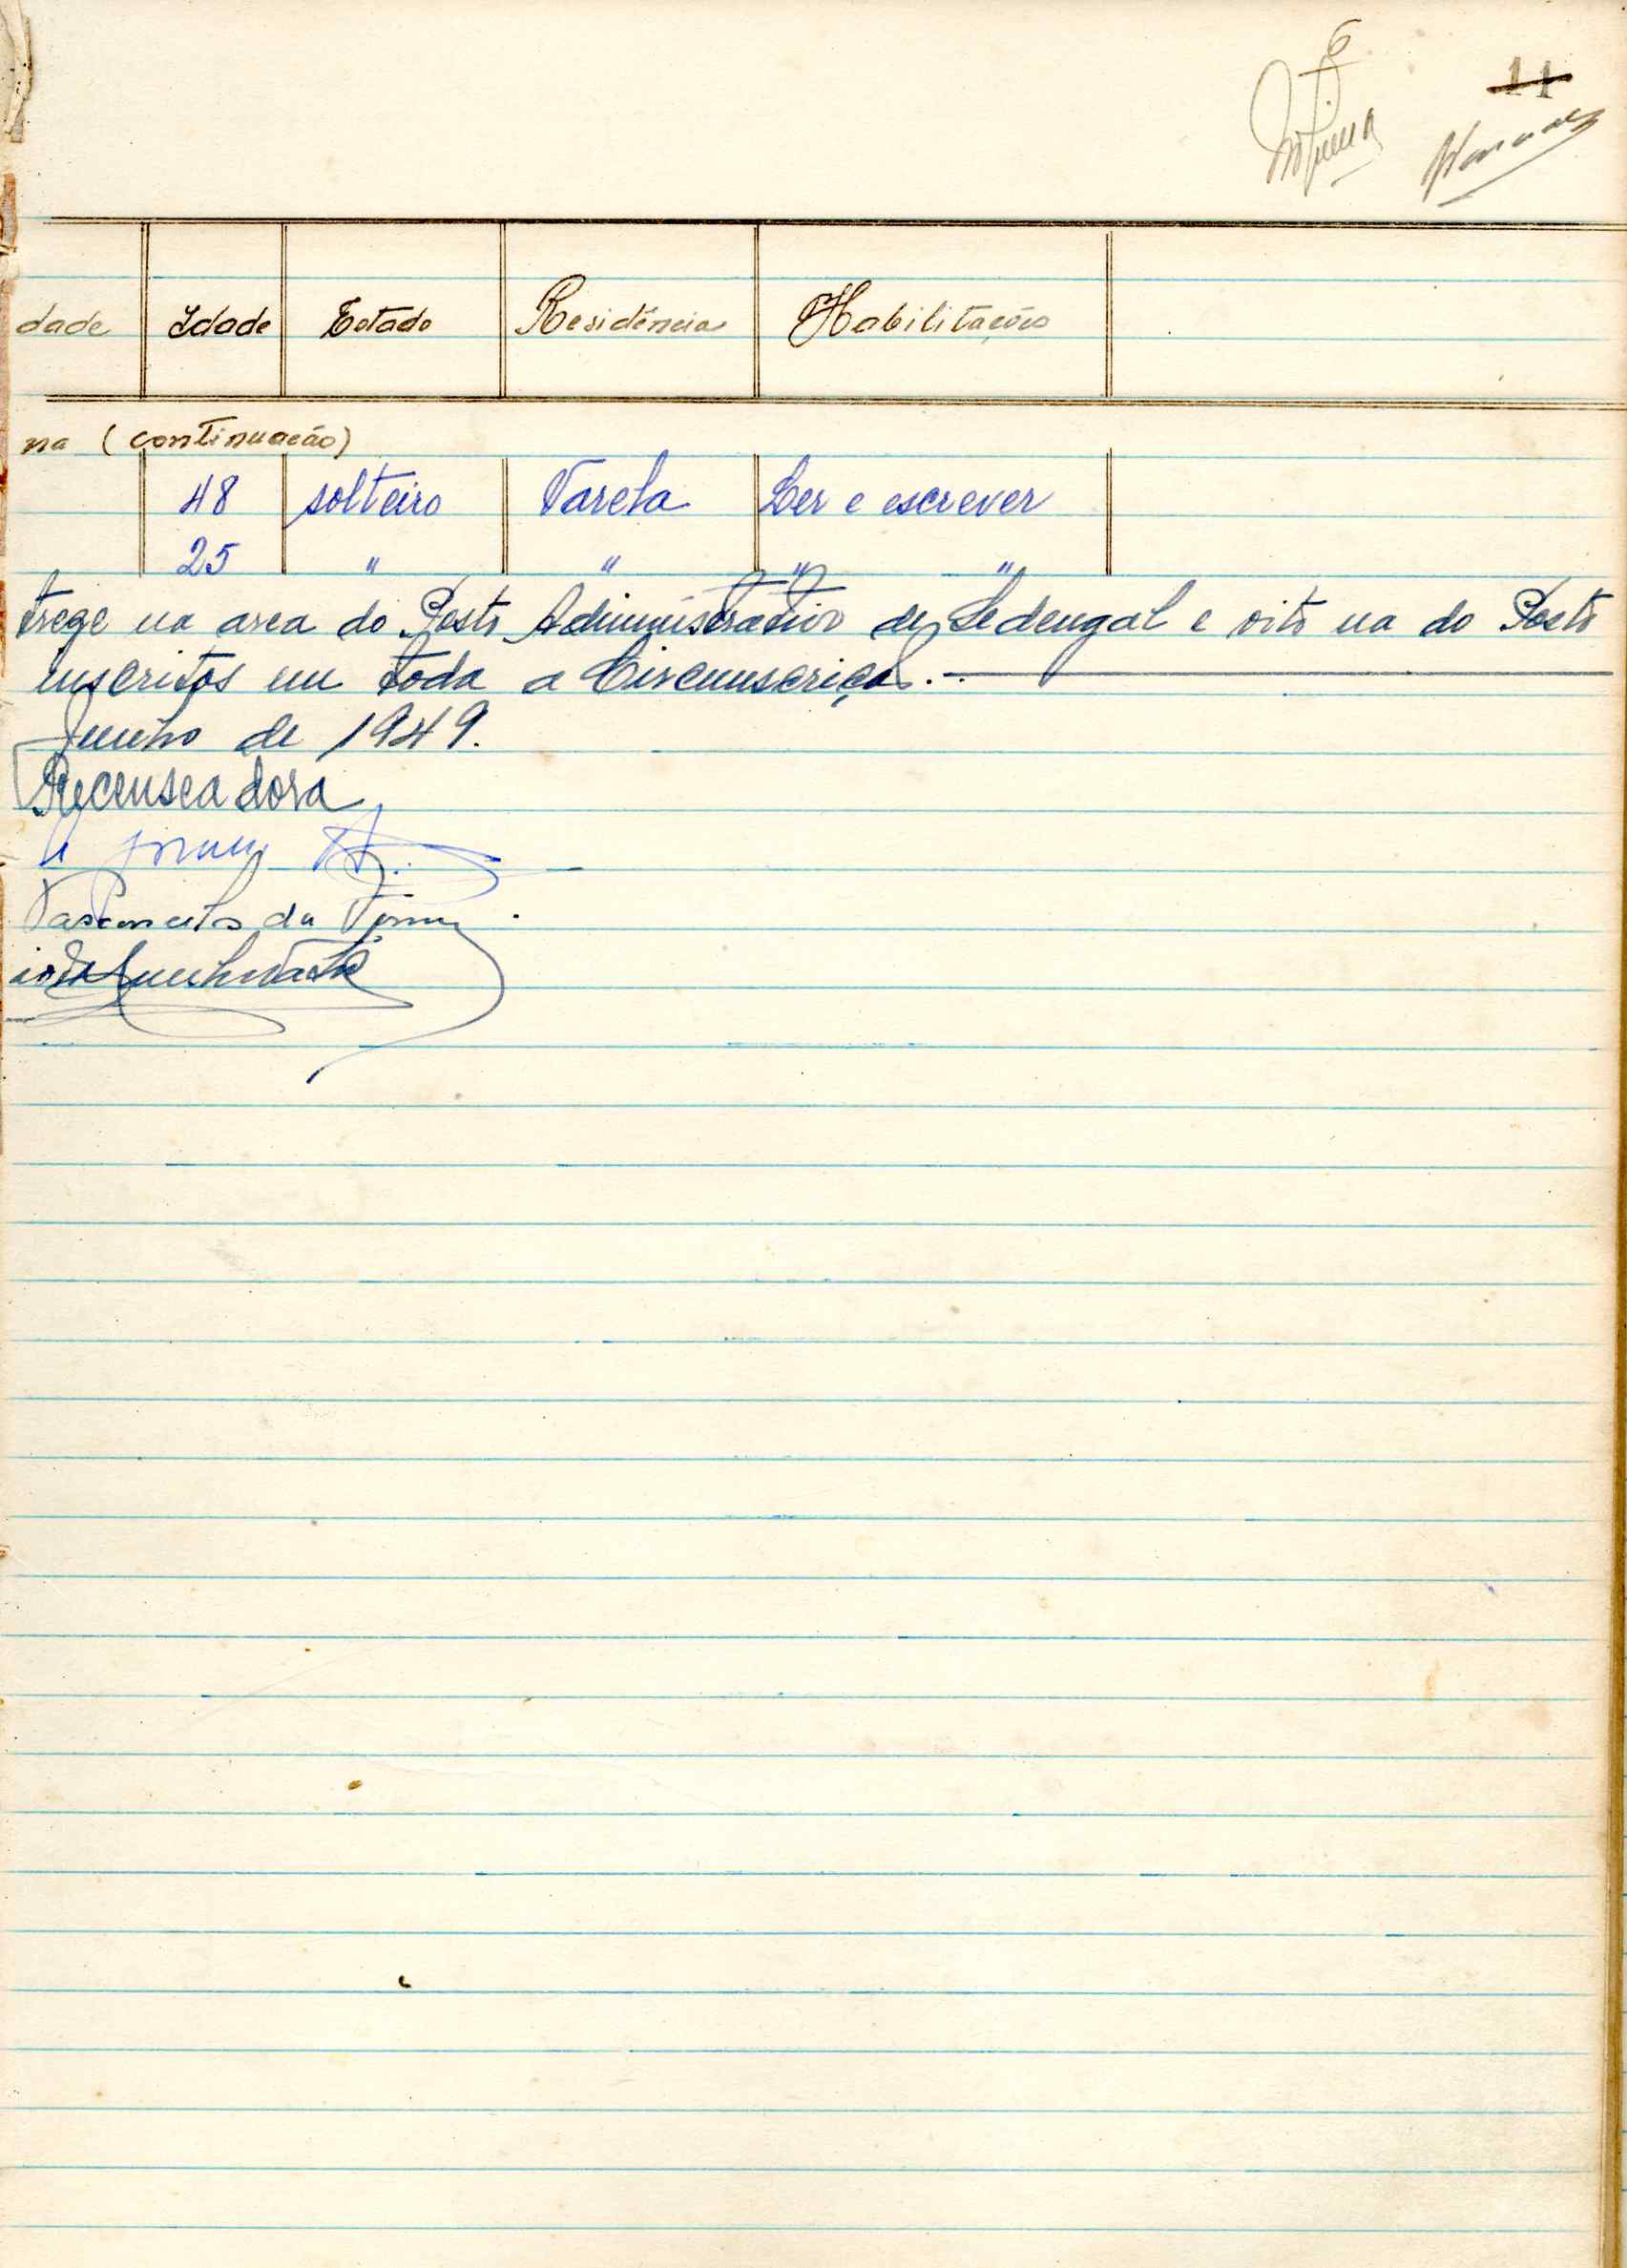 6
11
dade Idade Estado Residência Habilitações
na (continuação)
48 solteiro Varela Ler e escrever
25 " " " "
treze na area do Posto Administrativo de Sedengal e oito na do Posto
inscritos em toda a Circunscrição.
Junho de 1949.
Recenseadora
Vasconcelos da